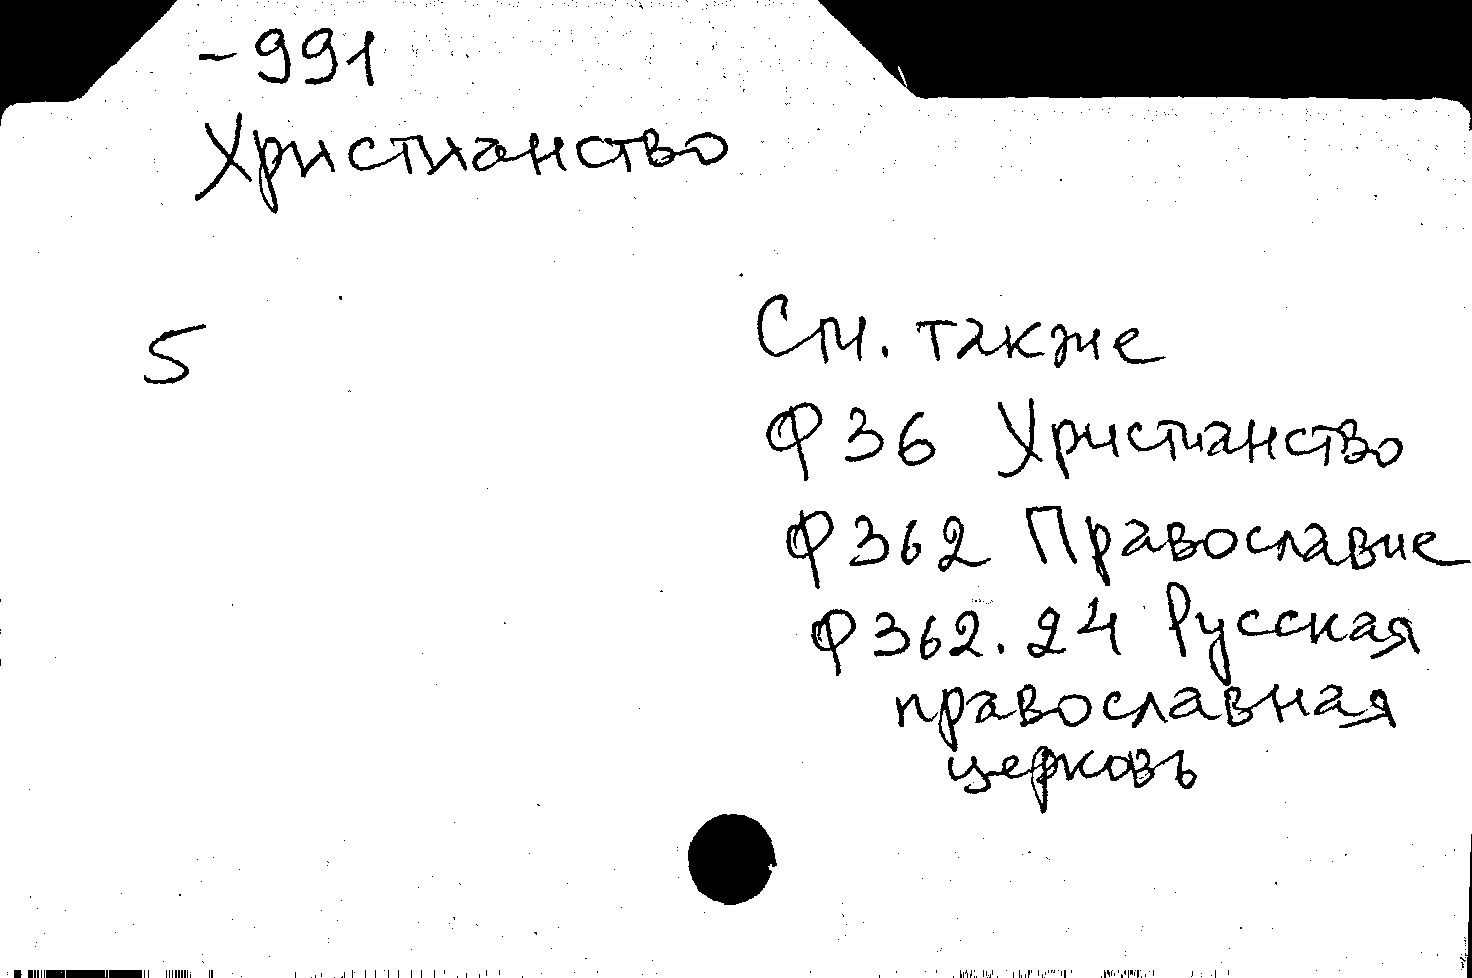 -991
Христианство
5
См. также
Ф36 Христианство
Ф362 Православие
Ф362.24 Русская
православная
церковь